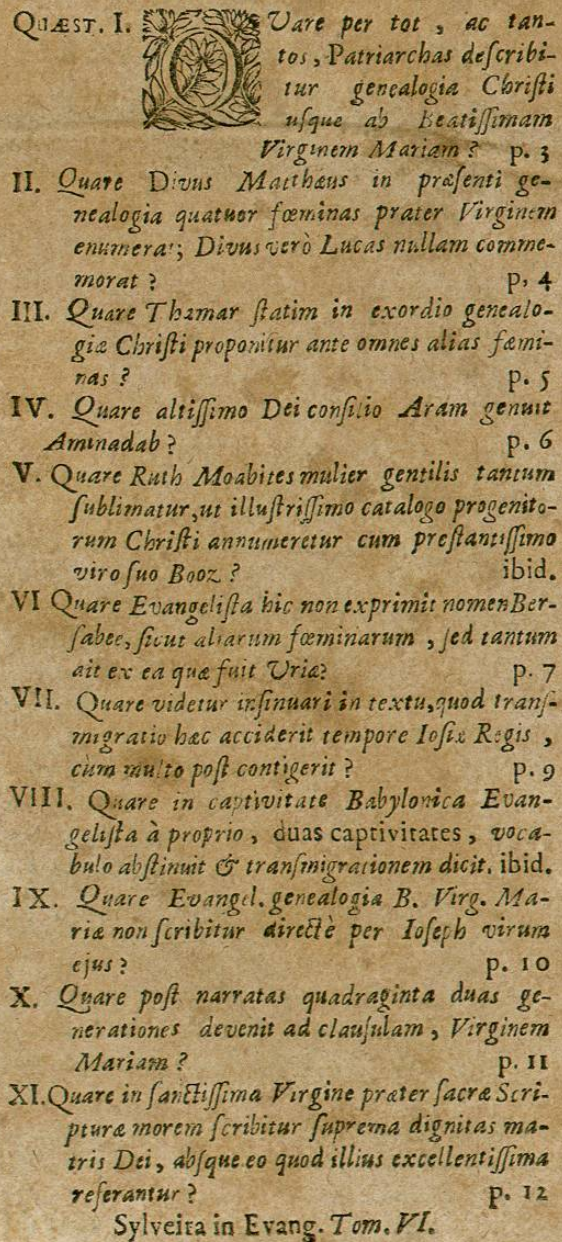 QUÆST. I. QVare per tot, ac tan-
tos, Patriarchas deſcribi-
tur genealogia Chriſti
uſque ab Beatiſſimam
Virginem Mariam? p. 3
II. Quare Divus Matthæus in præſenti ge-
nealogia quatuor fœminas præter Virginem
enumerat; Divus verò Lucas nullam comme-
morat? p. 4
III. Quare Thamar ſtatim in exordio genealo-
giæ Chriſti proponitur ante omnes alias fæmi-
nas? p. 5
IV. Quare altiſſimo Dei conſilio Aram genuit
Aminadab? p. 6
V. Quare Ruth Moabites mulier gentilis tantum
ſublimatur, ut illuſtriſſimo catalogo progenito-
rum Chriſti annumeretur cum preſtantiſſimo
viro ſuo Booz? ibid.
VI Quare Evangeliſta hic non exprimit nomen Ber-
ſabee, ſicut aliarum fœminarum, ſed tantum
ait ex ea quæ fuit Uriæ? p. 7
VII. Quare videtur inſinuari in textu, quod tranſ-
migratio hæc acciderit tempore Ioſiæ Regis,
cùm multo poſt contigerit? p. 9
VIII. Quare in captivitate Babylonica Evan-
geliſta à proprio, duas captivitates, voca-
bulo abſtinuit & tranſmigrationem dicit. ibid.
IX. Quare Evangel. genealogia B. Virg. Ma-
riæ non ſcribitur directè per Ioſeph virum
ejus? p. 10
X. Quare poſt narratas quadraginta duas ge-
nerationes devenit ad clauſulam, Virginem
Mariam? p. 11
XI. Quare in ſanctiſſima Virgine præter ſacræ Scri-
pturæ morem ſcribitur ſuprema dignitas ma-
tris Dei, abſque eo quod illius excellentiſſima
referantur? p. 12
Sylveira in Evang. Tom. VI.